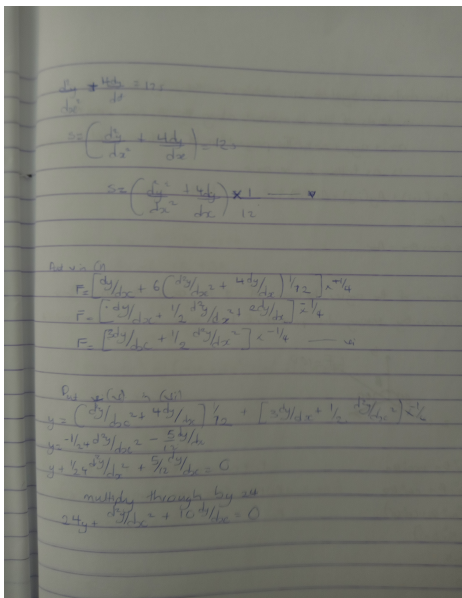 d²y/dx² + 4dy/dx = 12s
s = (d²y/dx² + 4dy/dx) = 12s
s = (d²y/dx² + 4dy/dx) × 1/12
Put v in (
F = [dy/dx + 6(d²y/dx² + 4dy/dx) 1/12] × -1/4
F = [-dy/dx + 1/2 d²y/dx² + 2dy/dx] × -1/4
F = [3dy/dx + 1/2 d²y/dx²] × -1/4
Put in
y = (d²y/dx² + 4dy/dx) 1/12 + [3dy/dx + 1/2 d²y/dx²] × -1/4
y = -1/24 d²y/dx² - 5/12 dy/dx
y + 1/24 d²y/dx² + 5/12 dy/dx = 0
multiply through by 24
24y + d²y/dx² + 10 dy/dx = 0